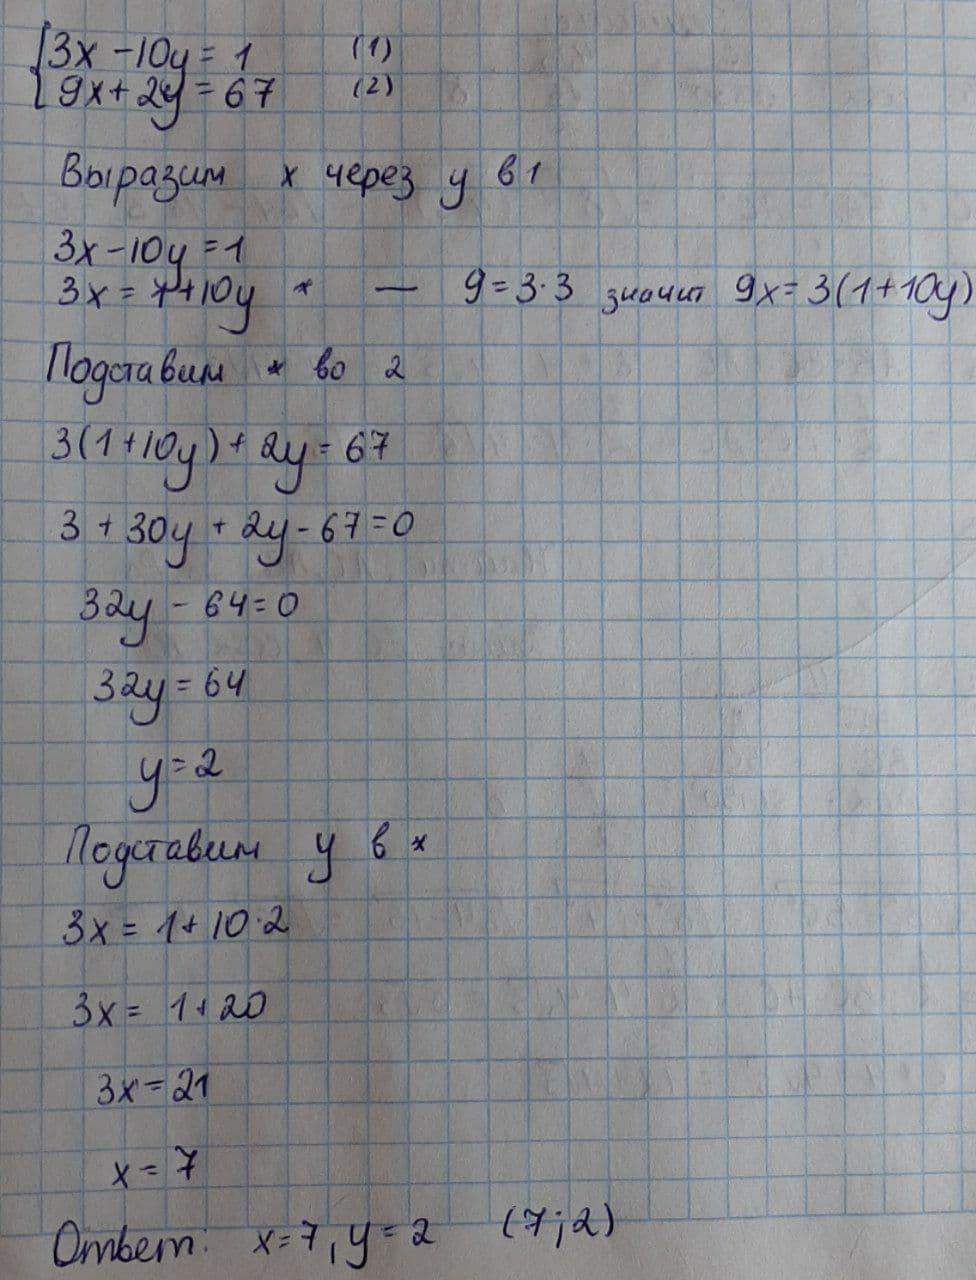 {3x - 10y = 1 (1)
{9x + 2y = 67 (2)
Выразим x через y в 1
3x - 10y = 1
3x = 1 + 10y * — 9 = 3·3 значит 9x = 3(1 + 10y)
Подставим * во 2
3(1 + 10y) + 2y = 67
3 + 30y + 2y - 67 = 0
32y - 64 = 0
32y = 64
y = 2
Подставим y в *
3x = 1 + 10·2
3x = 1 + 20
3x = 21
x = 7
Ответ: x = 7, y = 2 (7; 2)